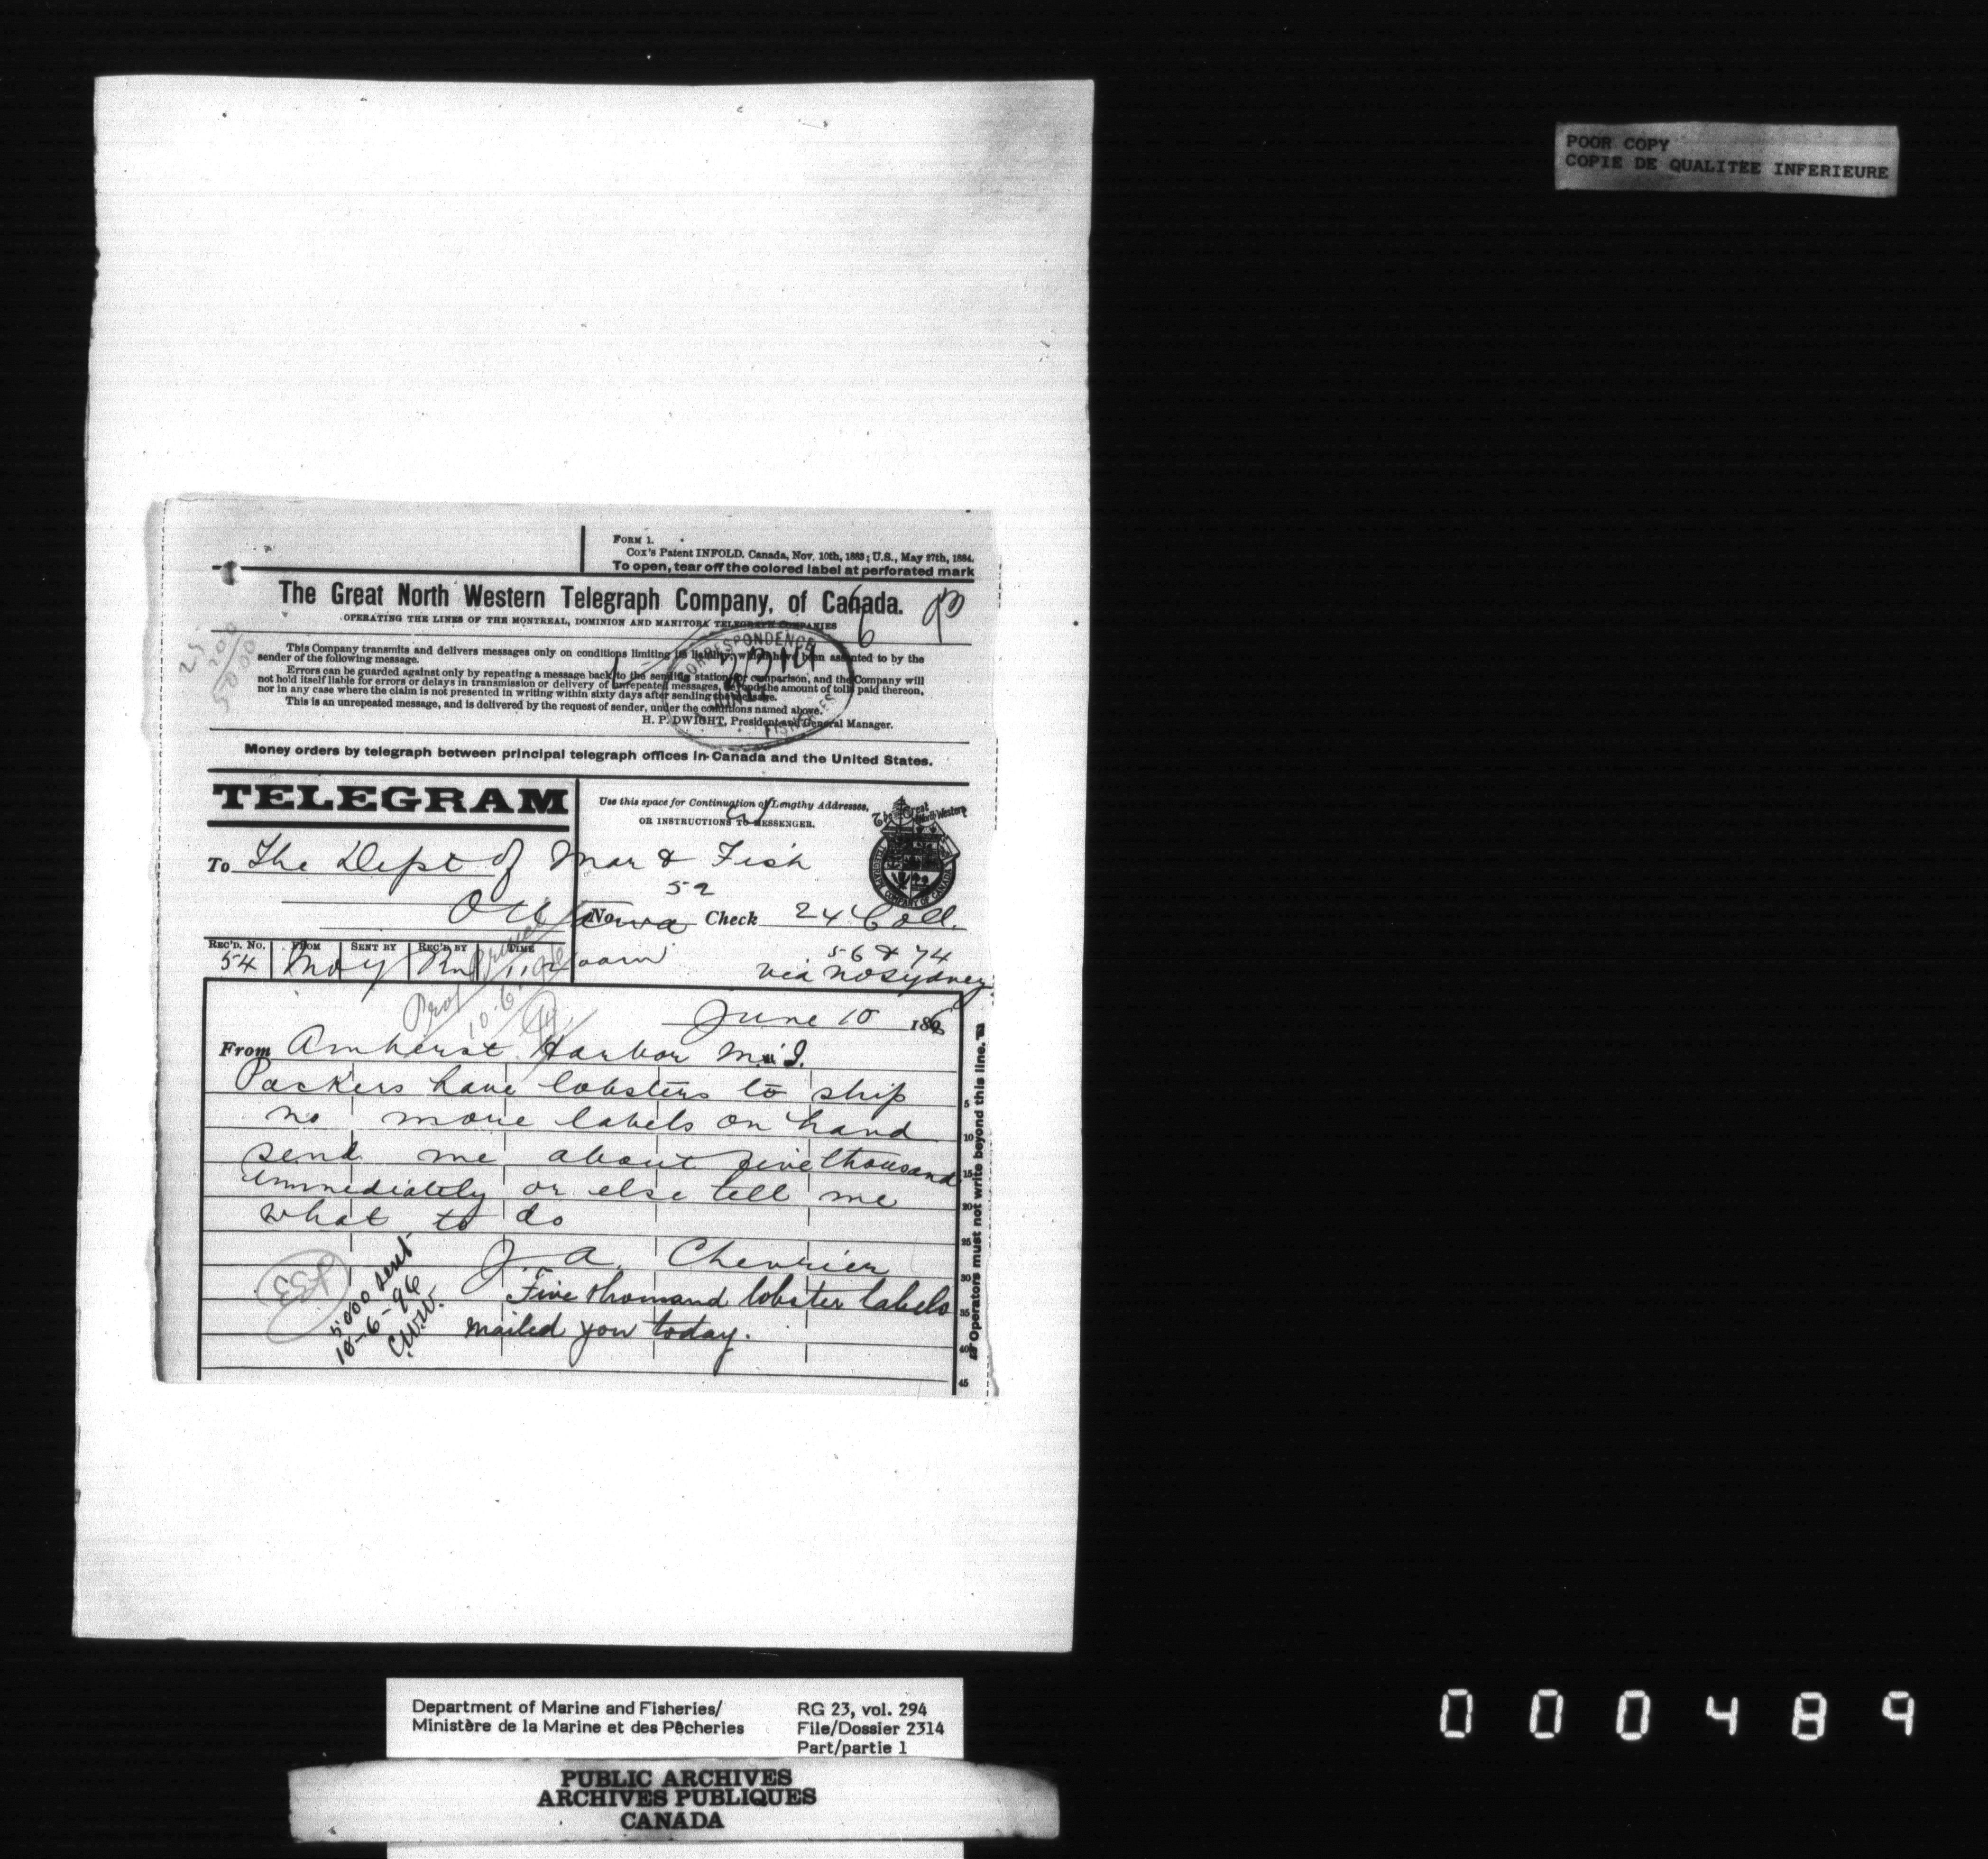 POOR COPY
COPIE DE QUALITEE INFERIEURE
FORM 1.
Cox's Patent INFOLD. Canada, Nov. 10th, 1883; U.S., May 27th, 1884.
To open, tear off the colored label at perforated mark
The Great North Western Telegraph Company, of Canada.
OPERATING THE LINES OF THE MONTREAL, DOMINION AND MANITOBA TELEGRAPH COMPANIES
This Company transmits and delivers messages only on conditions limiting its liability, which have been assented to by the
sender of the following message.
Errors can be guarded against only by repeating a message back to the sending station for comparison, and the Company will
not hold itself liable for errors or delays in transmission or delivery of unrepeated messages, beyond the amount of tolls paid thereon,
nor in any case where the claim is not presented in writing within sixty days after sending the message.
This is an unrepeated message, and is delivered by the request of sender, under the conditions named above.
H. P. DWIGHT, President and General Manager.
CORRESPONDENCE
FISHERIES
Money orders by telegraph between principal telegraph offices in Canada and the United States.
TELEGRAM
Use this space for Continuation of Lengthy Addresses,
OR INSTRUCTIONS TO MESSENGER.
To The Dept of Mar & Fish
52
Ottawa No. Check 24 Coll.
REC'D. No. FROM SENT BY REC'D BY TIME
54
56 & 74
via No Sydney
June 10 1896
From Amherst Harbor M.I.
Packers have lobsters to ship
no more labels on hand
send me about five thousand
immediately or else tell me
what to do
J. A. Chevrier
Five thousand lobster labels
mailed you today.
5000 sent
10-6-96
C.W.W.
5
10
15
20
25
30
35
40
45
Operators must not write beyond this line.
Department of Marine and Fisheries/
Ministère de la Marine et des Pêcheries
RG 23, vol. 294
File/Dossier 2314
Part/partie 1
PUBLIC ARCHIVES
ARCHIVES PUBLIQUES
CANADA
000489